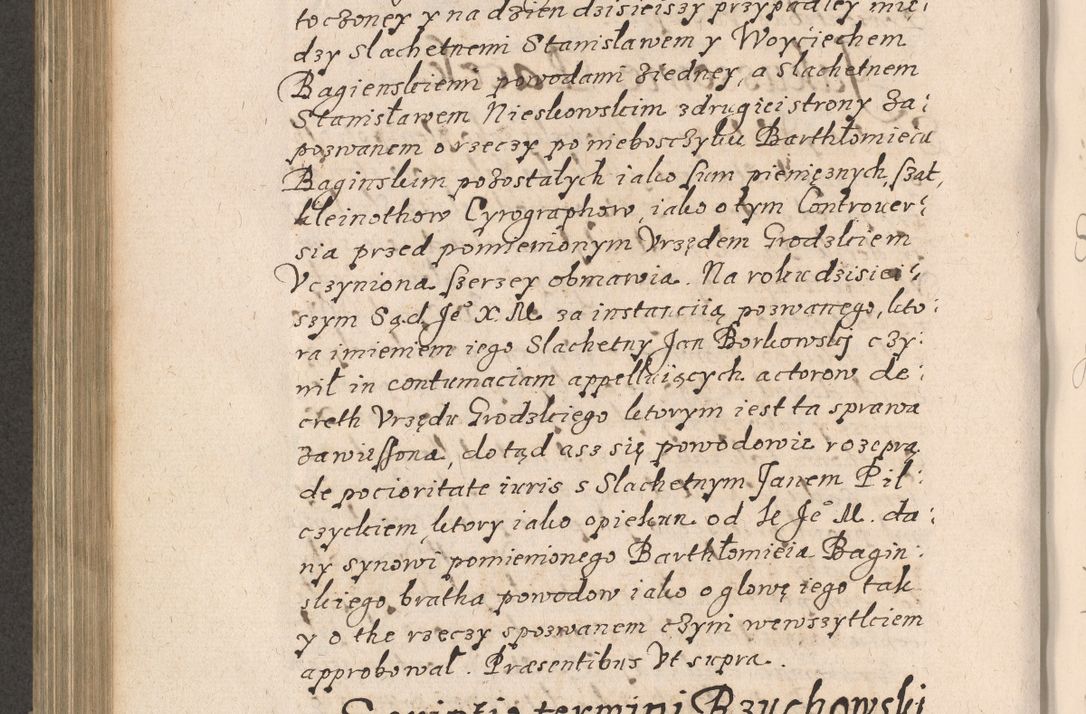 toczoney y na dzien dzisieiszy przypadłey mie:
dzy Slachetnemi Stanisławem y Woyciechem
Bagienskiemi powodami ziedney, a Slachetnem
Stanisławem Nieskowskim z drugiei strony za:
pozwanem o rzeczy po nieboszczyku Barthłomieiu
Baginskim pozostałych iako sum pieniężnych, szat,
kleinothow Cyrographow, iako o tym Controuer:
sia przed pomienionym Vrzędem Grodzkiem
Vczyniona szerzey obmawia. Na roku dzisiei:
szym Sąd Je° X. M. za instanciią pozwanego, kto:
ra imieniem iego Slachetny Jan Borkowskj czy:
nił in contumaciam appelluiących actorow de:
creth Vrzędu Grodzkiego ktorym iest ta sprawa
zawieszona, dotąd asz się powodowie rozeprą
de pocioritate iuris s Slachetnym Janem Pil:
czyckiem, ktory iako opiekun od Je° M. da:
ny synowi pomienionego Barthłomieia Bagin:
skiego, bratha powodow iako o głowę iego tak
y o the rzeczy spozwanem czyni wewszytkiem
approbował. Præsentibus Vt supra.
termini Rzuchowski